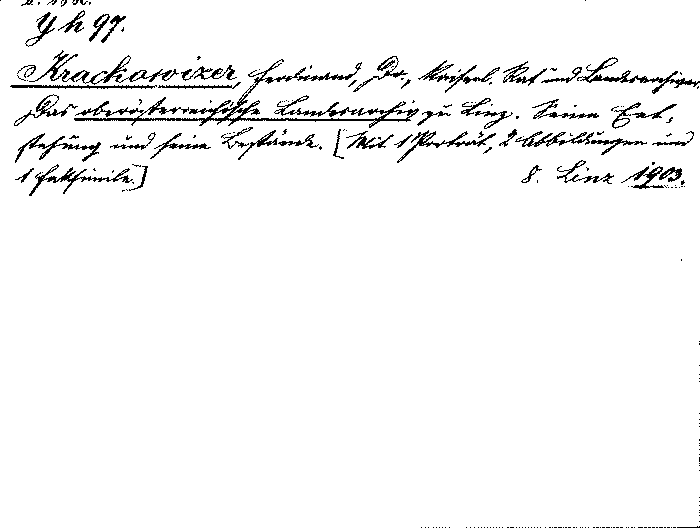 Y h 97.
Krackowizer, Ferdinand, Dr., Kaiserl. Rat und Landesarchivar,
Das oberösterreichische Landesarchiv zu Linz. Seine Ent-
stehung und seine Bestände. [Mit 1 Porträt, 2 Abbildungen und
1 Faksimile.] 8. Linz 1903.